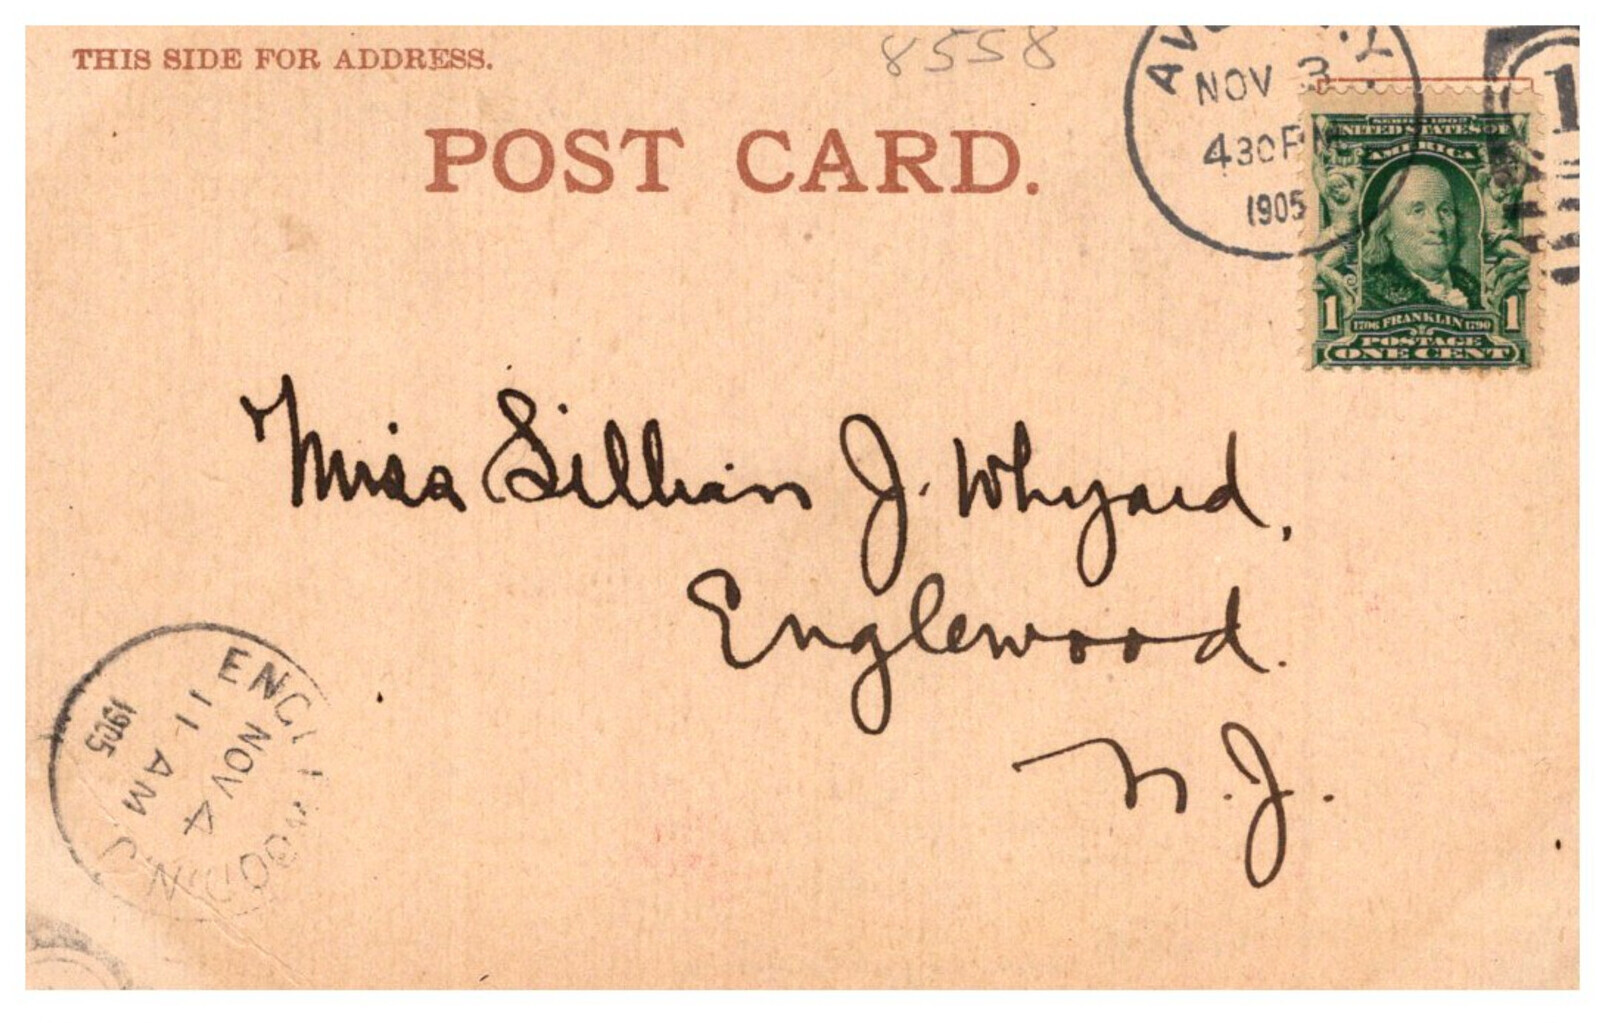 THIS SIDE FOR ADDRESS.
8558
POST CARD.
NOV 3
430 PM
1905
1
SERIES 1902
UNITED STATES OF
AMERICA
1 1706 FRANKLIN 1790 1
POSTAGE
ONE CENT
Miss Lillian J. Whyard,
Englewood.
N. J.
ENGLEWOOD
N.J.
NOV 4
11 AM
1905